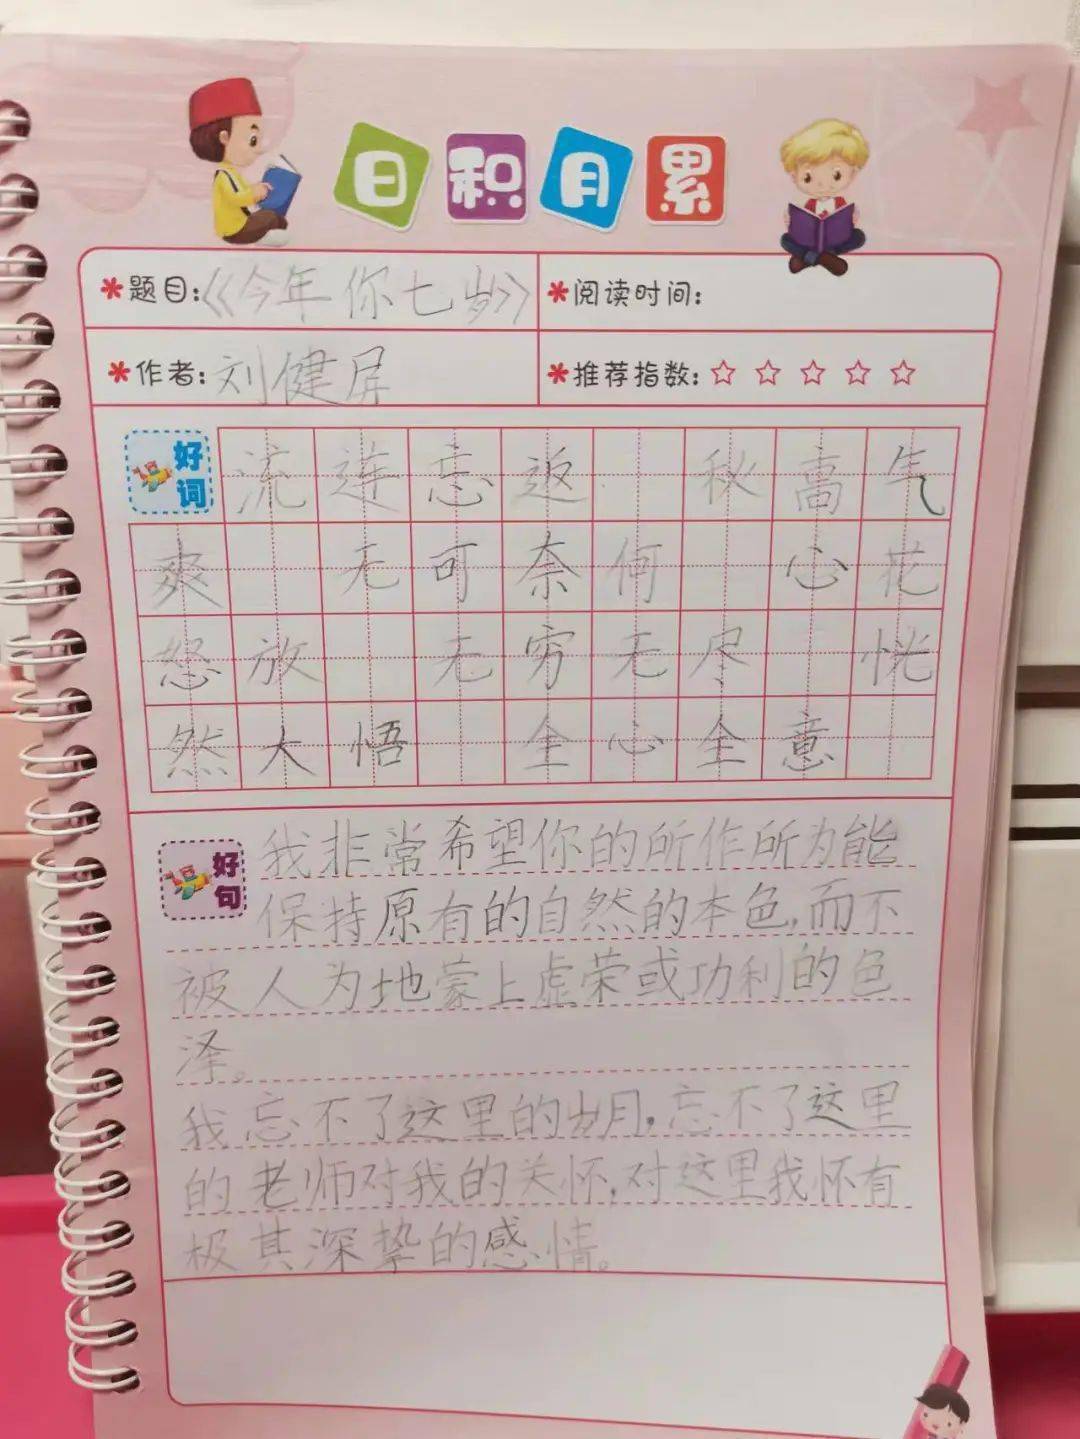 日积月累
*题目:《今年你七岁》 *阅读时间:
*作者:刘健屏 *推荐指数:☆☆☆☆☆
好词 流连忘返 秋高气
爽 无可奈何 心花
怒放 无穷无尽 恍
然大悟 全心全意
好句 我非常希望你的所作所为能
保持原有的自然的本色,而不
被人为地蒙上虚荣或功利的色
泽。
我忘不了这里的岁月,忘不了这里
的老师对我的关怀,对这里我怀有
极其深挚的感情。